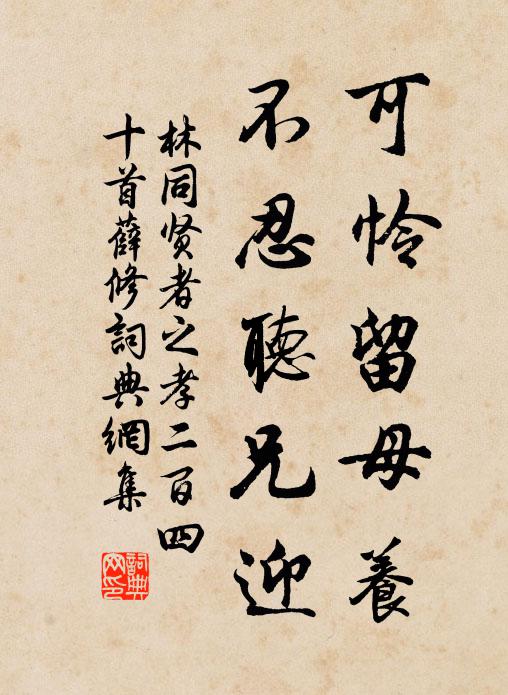 可怜留母養
不忍聽兄迎
林同贤者之孝二百四
十首薛修詞典網集
詞典
網印